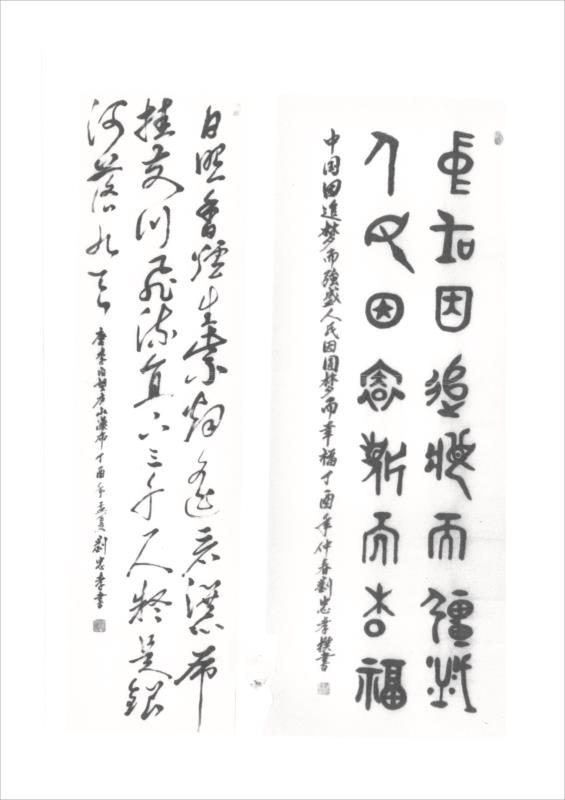 中國因追夢而彊盛
人民因圓夢而幸福
中国因追梦而强盛人民因圆梦而幸福丁酉年仲春劉忠孝撰書
日照香爐生紫烟遥看瀑布
挂前川飛流直下三千尺疑是銀
河落九天
唐李白望庐山瀑布丁酉年孟夏劉忠孝書